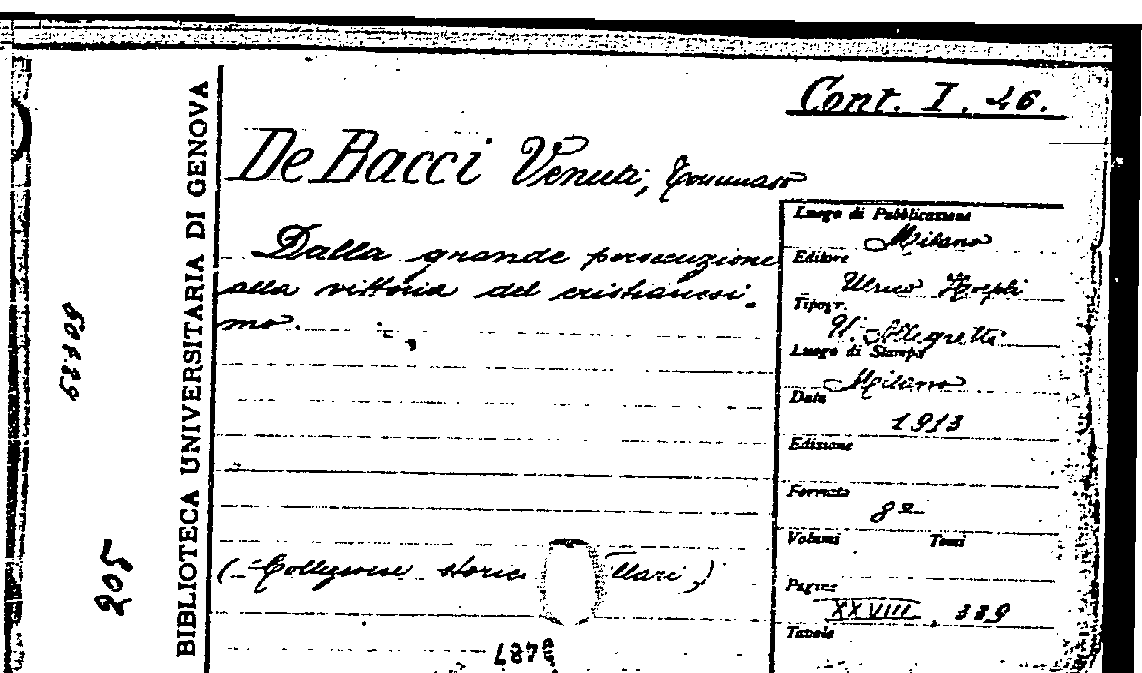 Cont. I. 26.
De Bacci Venuti, Tommaso
Dalla grande persecuzione
alla vittoria del cristianesi-
mo.
(Collezione storica Villari)
BIBLIOTECA UNIVERSITARIA DI GENOVA
205
Luogo di Pubblicazione
Milano
Editore
Ulrico Hoepli
Tipogr.
U. Allegretti
Luogo di Stampa
Milano
Data
1913
Edizione
Formato
8º
Volumi Tomi
Pagine
XXVIII, 339
Tavole